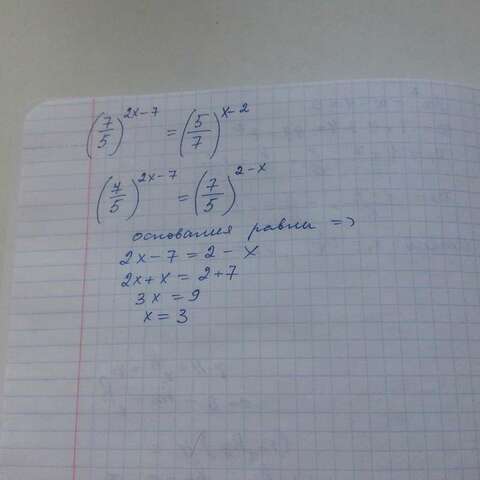 (7/5)^(2x-7) = (5/7)^(x-2)
(7/5)^(2x-7) = (7/5)^(2-x)
основания равны =>
2x-7 = 2-x
2x+x = 2+7
3x = 9
x = 3